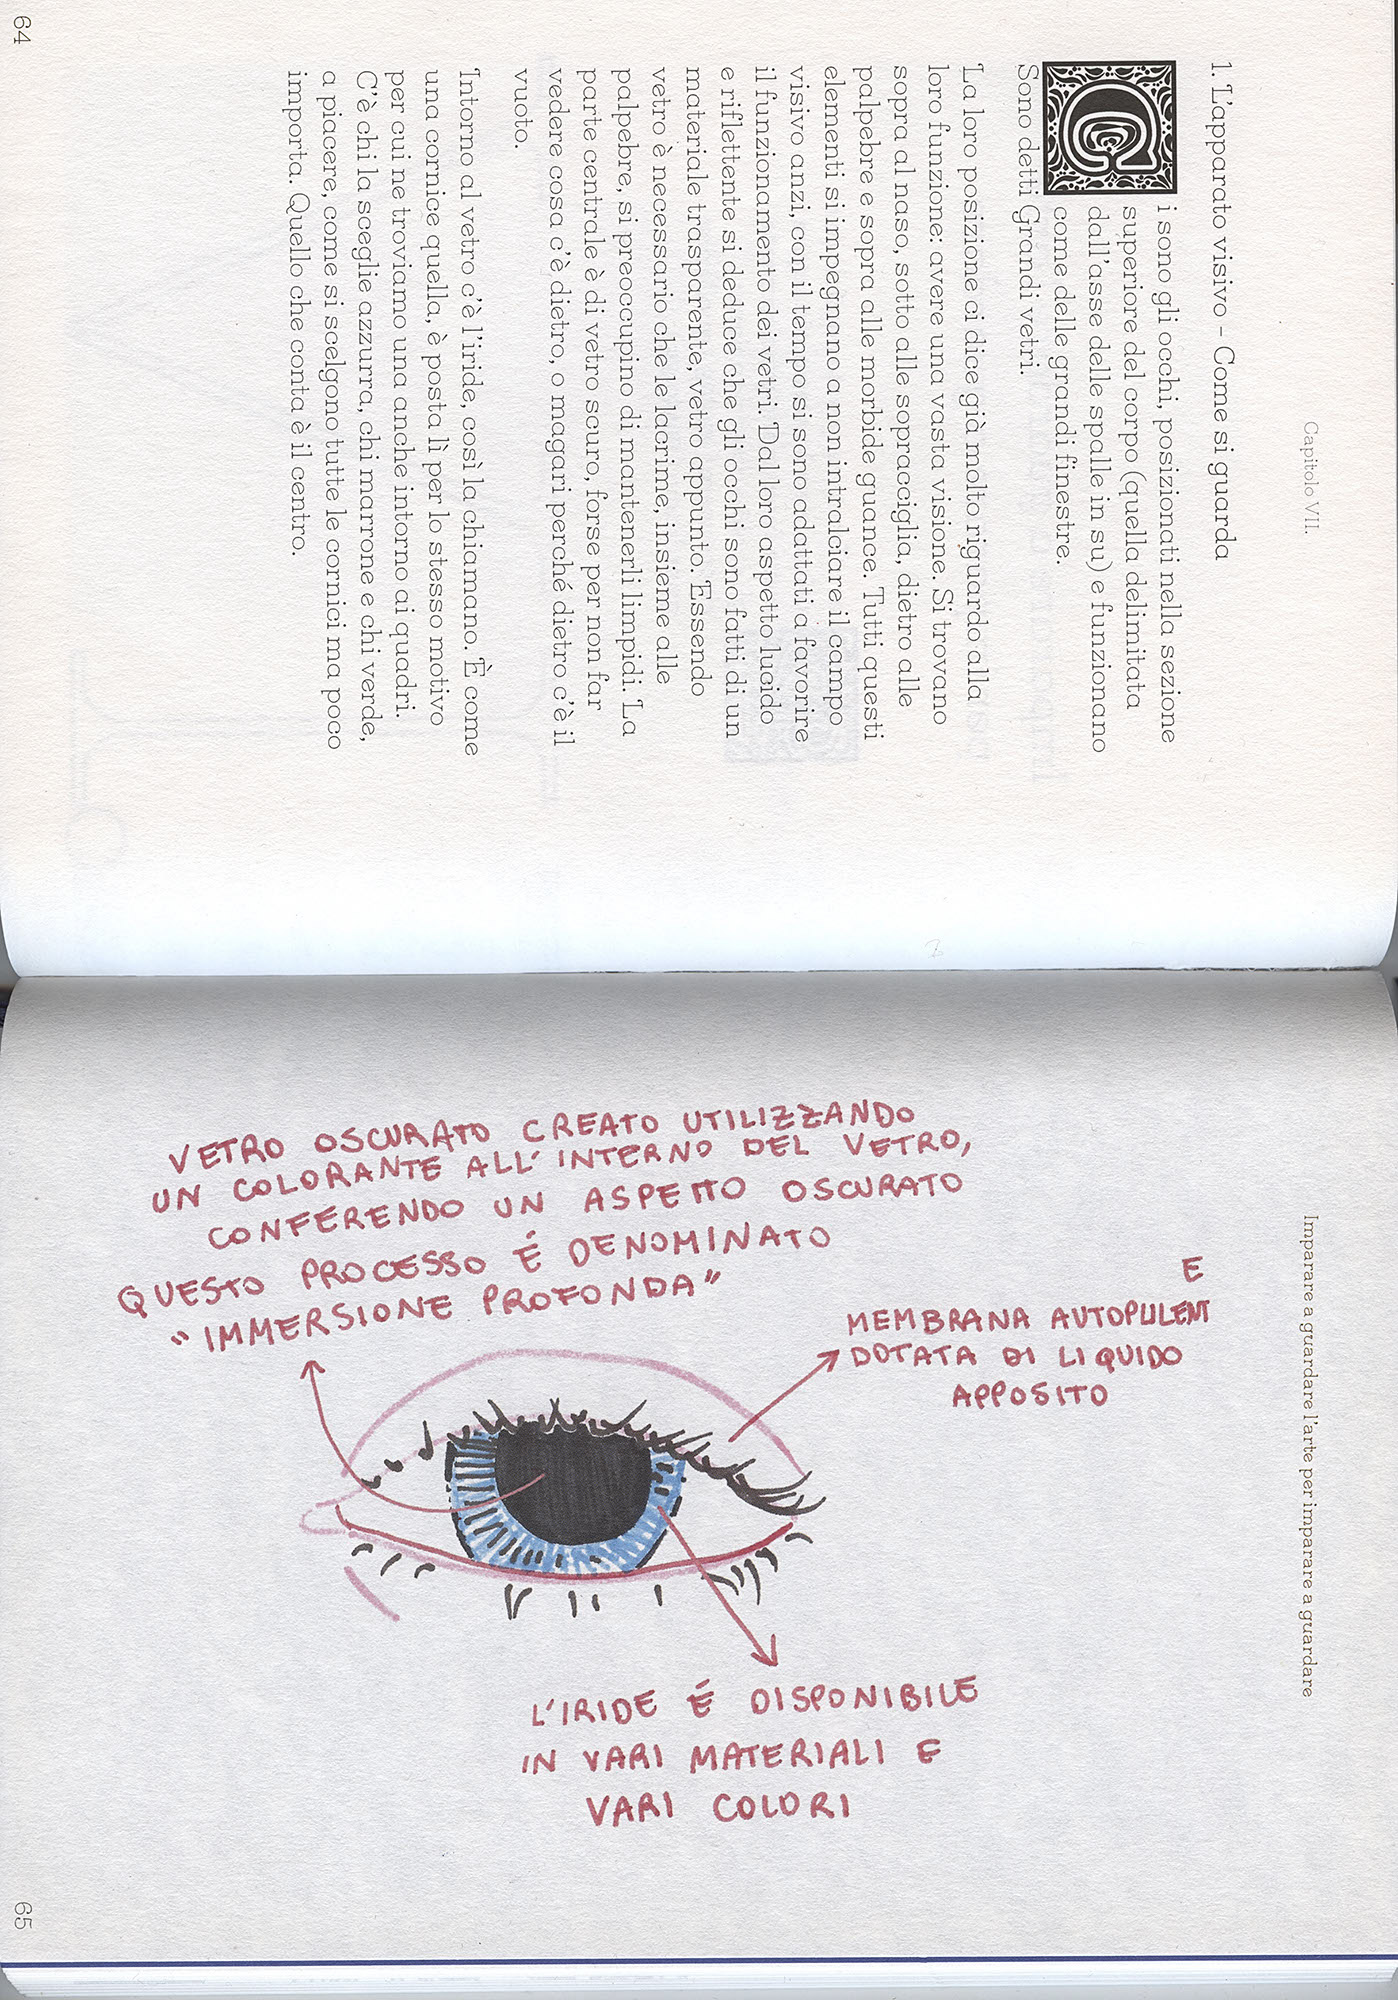 64
Capitolo VII.
1. L'apparato visivo - Come si guarda
Ci sono gli occhi, posizionati nella sezione
superiore del corpo (quella delimitata
dall'asse delle spalle in su) e funzionano
come delle grandi finestre.
Sono detti Grandi vetri.
La loro posizione ci dice già molto riguardo alla
loro funzione: avere una vasta visione. Si trovano
sopra al naso, sotto alle sopracciglia, dietro alle
palpebre e sopra alle morbide guance. Tutti questi
elementi si impegnano a non intralciare il campo
visivo anzi, con il tempo si sono adattati a favorire
il funzionamento dei vetri. Dal loro aspetto lucido
e riflettente si deduce che gli occhi sono fatti di un
materiale trasparente, vetro appunto. Essendo
vetro è necessario che le lacrime, insieme alle
palpebre, si preoccupino di mantenerli limpidi. La
parte centrale è di vetro scuro, forse per non far
vedere cosa c'è dietro, o magari perché dietro c'è il
vuoto.
Intorno al vetro c'è l'iride, così la chiamano. È come
una cornice quella, è posta lì per lo stesso motivo
per cui ne troviamo una anche intorno ai quadri.
C'è chi la sceglie azzurra, chi marrone e chi verde,
a piacere, come si scelgono tutte le cornici ma poco
importa. Quello che conta è il centro.
Imparare a guardare l'arte per imparare a guardare
VETRO OSCURATO CREATO UTILIZZANDO
UN COLORANTE ALL'INTERNO DEL VETRO,
CONFERENDO UN ASPETTO OSCURATO
QUESTO PROCESSO É DENOMINATO
"IMMERSIONE PROFONDA"
E
MEMBRANA AUTOPULENT
DOTATA DI LIQUIDO
APPOSITO
L'IRIDE É DISPONIBILE
IN VARI MATERIALI E
VARI COLORI
65